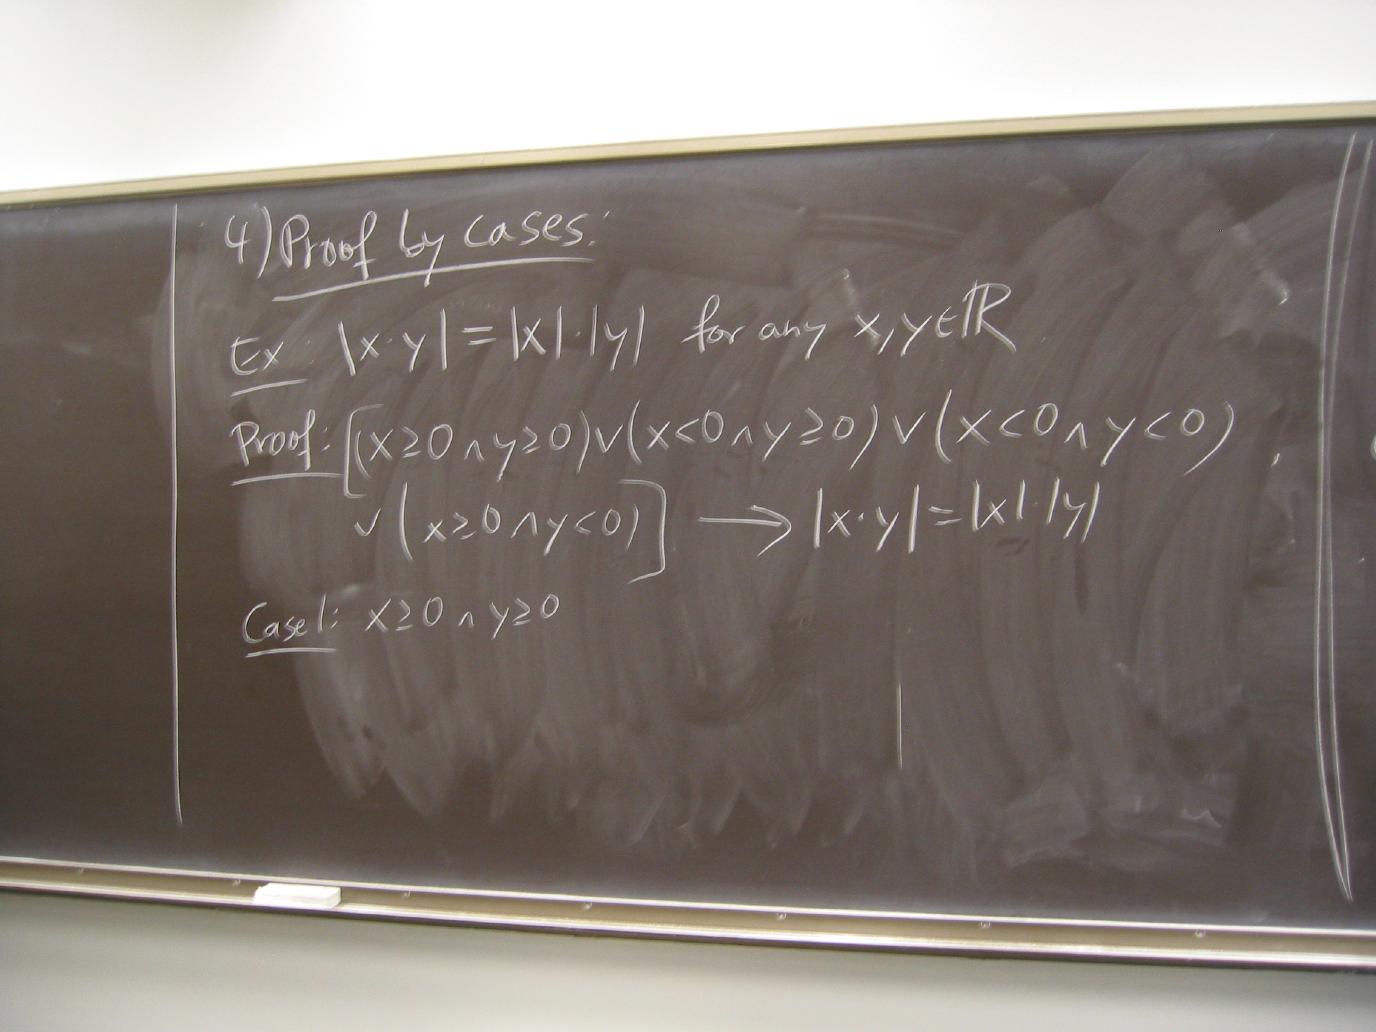 4) Proof by cases:
Ex: |x·y| = |x|·|y| for any x,y∈ℝ
Proof: [(x≥0 ∧ y≥0) ∨ (x<0 ∧ y≥0) ∨ (x<0 ∧ y<0)
∨ (x≥0 ∧ y<0)] → |x·y| = |x|·|y|
Case 1: x≥0 ∧ y≥0